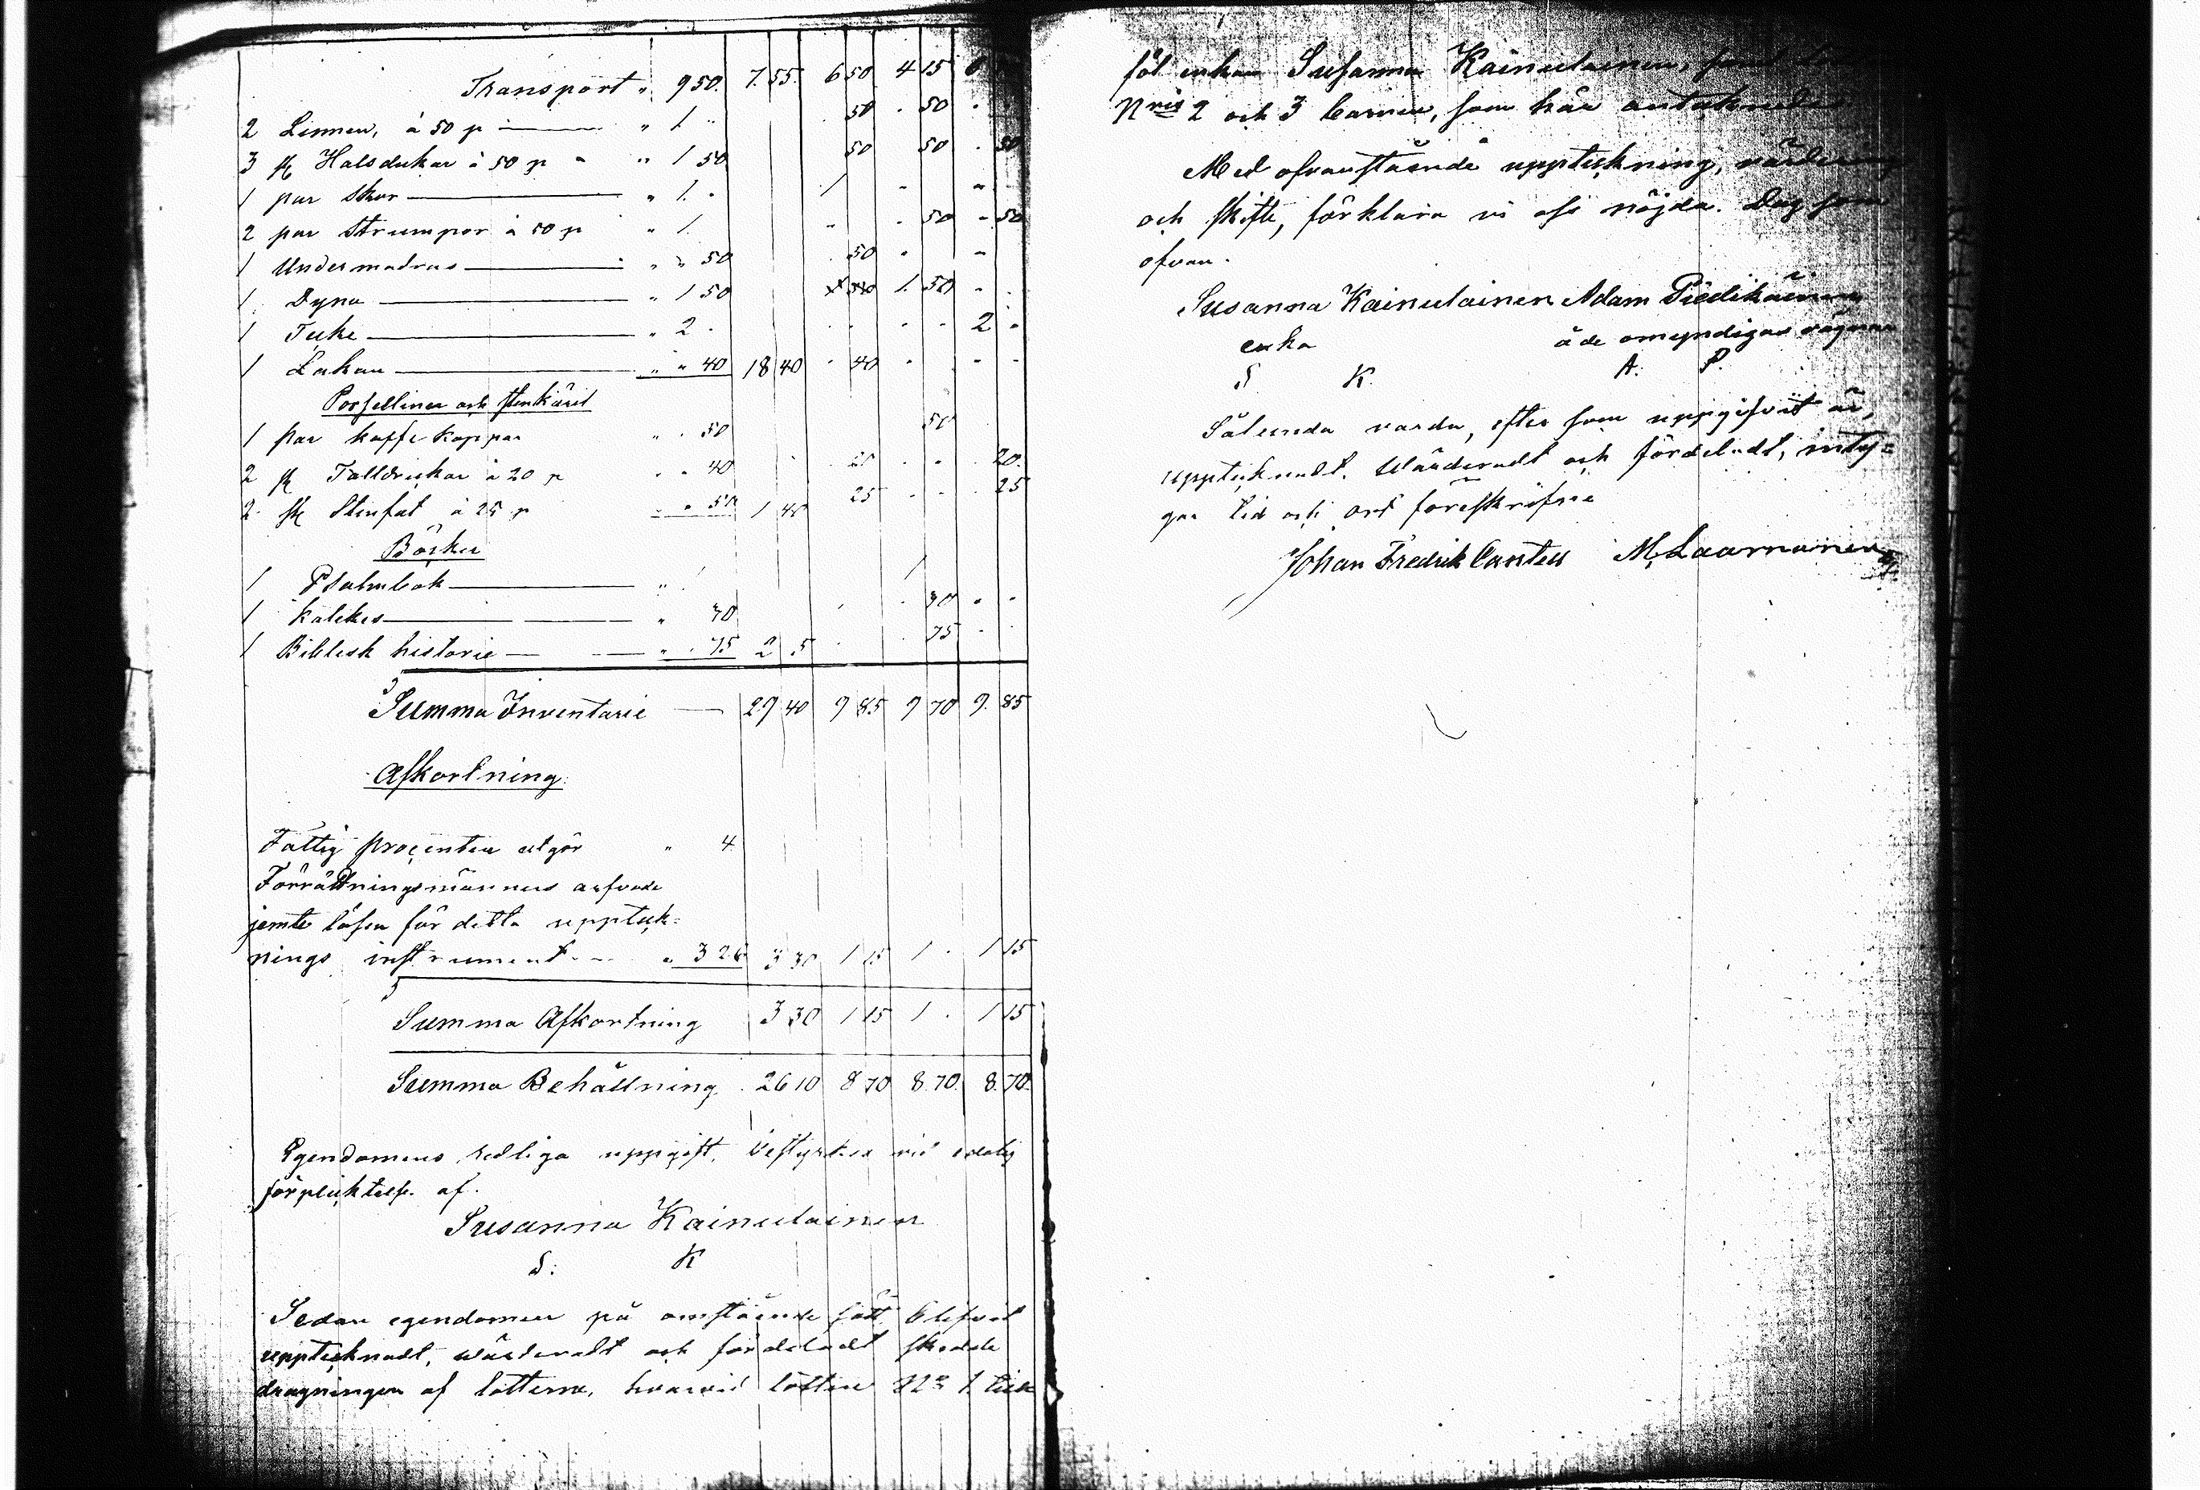 Transport " 9 50. 7. 55. 6 50 4 15 6
2 Linnen, à 50 p — " 1 " . 50 . 50 .
3 st Halsdukar à 50 p " " 1 50 50 50 . 50
1 par Skor — " 1. " 1 " "
2 par Strumpor à 50 p " 1. " . 50 " 50
1 Undermadras — " " 50 . 50 " "
1. Dyna — " 1 50 1. 50 " .
1 Täcke — " 2 . . . . 2 "
1 Lakan — " " 40 18 40 . 40 " " "
Porselliner och stenkäril
1 par kaffe koppar " . 50 50
2 st Talldrickar à 20 p " " 40 20 . . 20.
2 st Stenfat à 25 p " " 50 1 40 25 . . . 25
Böcker
1 Psalmbok — " 1 1
1 Katekes — " 30 . 30 " "
1 Biblisk historie — " . 75 2 . 5 . . 75 . .
Summa Inventarie — 29 40 9 85 9 70 9. 85
Afkortning.
Fattig procenten utgör " 4
Förrättningsmännens arfvode
jemte lösen för detta upptek-
nings instrument — " 3 26 3 30 1 15 1 . 1 15
Summa Afkortning 3 30 1 15 1 . 1 15
Summa Behållning. 26 10 8 70 8. 70. 8. 70.
Egendomens redliga uppgift, bestyrkes vid edelig
förpliktelse af.
Susanna Kainulainen
S. K
Sedan egendomen på omstående sätt blifvit
uppteknadt, wärderadt och fördeladt skedde
dragningen af lotterne, hvarvid lotten No 1 till
föl enkan Susanna Kainulainen,
Nris 2 och 3 barnen, som här
Med ofvanstående uppteckning, värdering
och skifte, förklara vi oss nöjda. Dag som
ofvan.
Susanna Kainulainen Adam Piedikäinen
enka å de omyndigas vägnar
S K. A. P.
Sålunda varda, efter som uppgifvit är,
uppteknadt, Wärderadt och fördeladt, inty-
gar tid och ort föreskrifne
Johan Fredrik Canstell M. Laamanen